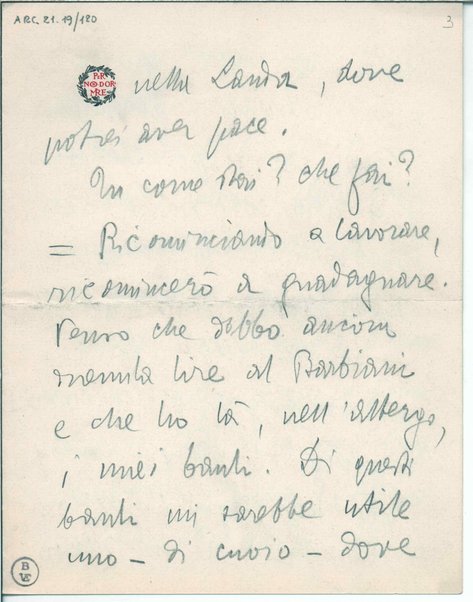 ARC. 21. 19/120
3
PER NON DORMIRE
nella Landa, dove
potrei aver pace.
Tu come stai? che fai?
= Ricominciando a lavorare,
ricomincerò a guadagnare.
Penso che debbo ancora
tremila lire al Barbiani
e che ho là, nell'albergo,
i miei bauli. Di questi
bauli mi sarebbe utile
uno – di cuoio – dove
B
VE